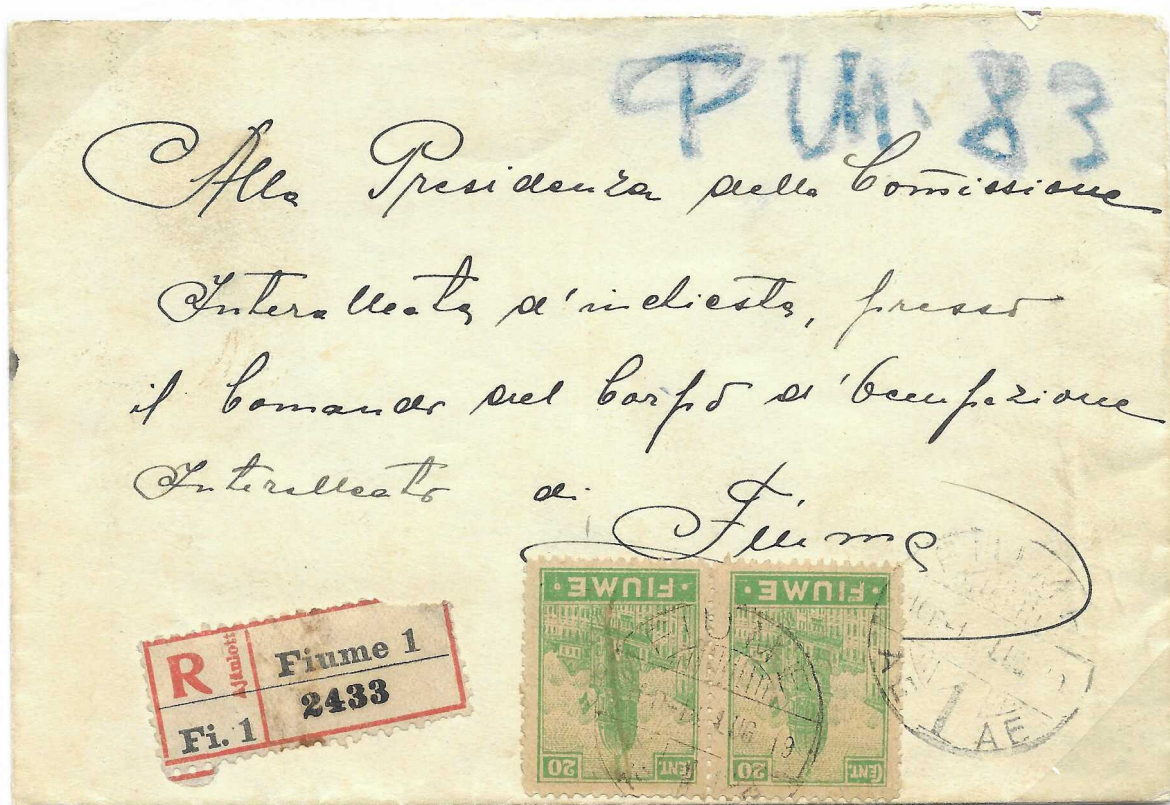 PUI. 83
Alla Presidenza della Com̄issione
Interalleata d'inchiesta, presso
il Comando del Corpo d'Occupazione
Interalleato di Fiume
R Ajánlott Fiume 1
Fi. 1 2433
· FIUME · · FIUME ·
20 CENT. 20 CENT.
LUG 19
1